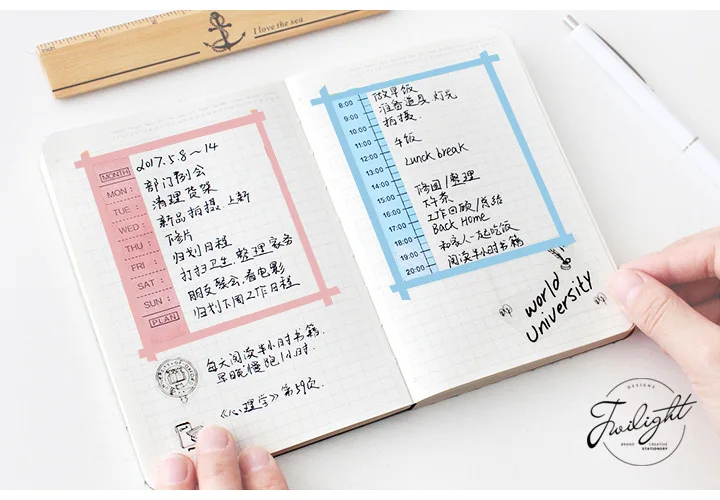 I love the sea
MONTH
2017.5.8~14
MON:
部门例会
TUE:
清理货架
WED:
新品拍摄上新
THU:
下午修片
FRI:
归划日程
SAT:
打扫卫生,整理家务
SUN:
朋友聚会,看电影
PLAN
归划下周工作日程
每天阅读半小时书籍.
早晚慢跑1小时.
《心理学》第59页.
8:00
做早饭
9:00
准备道具 灯光
10:00
拍摄.
11:00
午饭
12:00
Lunck break
13:00
14:00
修图/整理
15:00
下午茶
16:00
工作回顾/总结
17:00
Back Home
18:00
和家人一起吃饭
19:00
阅读半小时书籍
20:00
world
University
DESIGNS
Twilight
BRAND CREATIVE
STATIONERY